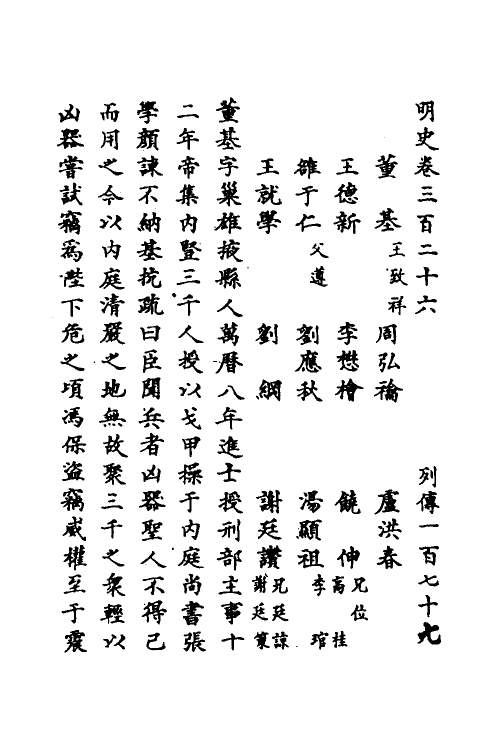 明史卷三百二十六 列傳一百七十九
董基 王致祥 周弘禴 盧洪春
王德新 李懋檜 饒伸 兄位 高桂
雒于仁 父遵 劉應秋 湯顯祖 李琯
王就學 劉綱 謝廷讚 兄廷諒 謝廷策
董基字巢雄掖縣人萬曆八年進士授刑部主事十
二年帝集內豎三千人授以戈甲操于內庭尚書張
學顏諫不納基抗疏曰臣聞兵者凶器聖人不得已
而用之今以內庭清嚴之地無故聚三千之衆輕以
凶器嘗試竊爲陛下危之頃馮保盜竊威權至于震